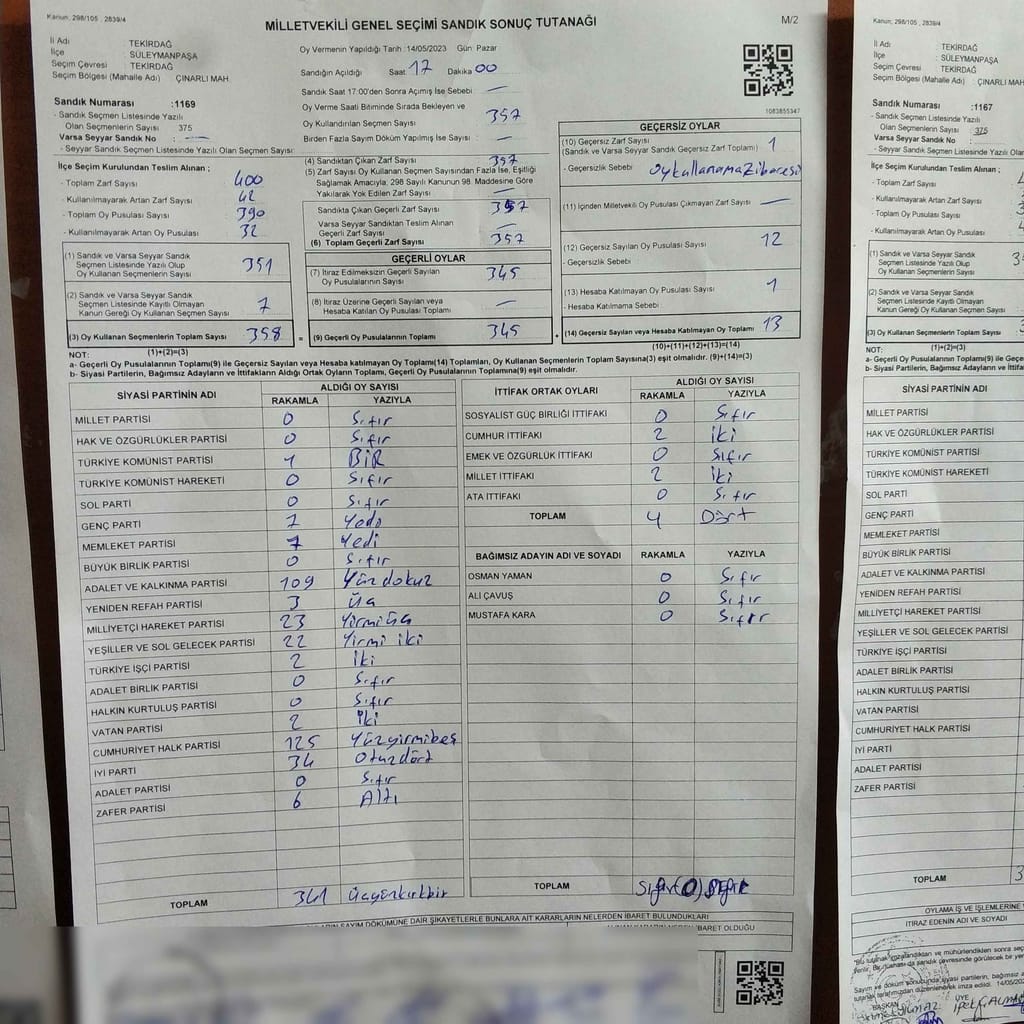 Kanun; 298/105 , 2839/4
MİLLETVEKİLİ GENEL SEÇİMİ SANDIK SONUÇ TUTANAĞI
M/2
İl Adı : TEKİRDAĞ
İlçe : SÜLEYMANPAŞA
Seçim Çevresi : TEKİRDAĞ
Seçim Bölgesi (Mahalle Adı) ÇINARLI MAH.
Sandık Numarası :1169
- Sandık Seçmen Listesinde Yazılı
Olan Seçmenlerin Sayısı 375
Varsa Seyyar Sandık No : —
- Seyyar Sandık Seçmen Listesinde Yazılı Olan Seçmen Sayısı:
İlçe Seçim Kurulundan Teslim Alınan ;
- Toplam Zarf Sayısı 400
- Kullanılmayarak Artan Zarf Sayısı 42
- Toplam Oy Pusulası Sayısı 390
- Kullanılmayarak Artan Oy Pusulası 32
(1) Sandık ve Varsa Seyyar Sandık
Seçmen Listesinde Yazılı Olup
Oy Kullanan Seçmenlerin Sayısı 351
(2) Sandık ve Varsa Seyyar Sandık
Seçmen Listesinde Kayıtlı Olmayan
Kanun Gereği Oy Kullanan Seçmen Sayısı 7
(3) Oy Kullanan Seçmenlerin Toplam Sayısı 358
Oy Vermenin Yapıldığı Tarih : 14/05/2023 Gün: Pazar
Sandığın Açıldığı Saat 17 Dakika 00
Sandık Saat 17:00'den Sonra Açımış İse Sebebi —
Oy Verme Saati Bitiminde Sırada Bekleyen ve
Oy Kullandırılan Seçmen Sayısı 357
Birden Fazla Sayım Döküm Yapılmış İse Sayısı : —
(4) Sandıktan Çıkan Zarf Sayısı 357
(5) Zarf Sayısı Oy Kullanan Seçmen Sayısından Fazla İse, Eşitliği
Sağlamak Amacıyla; 298 Sayılı Kanunun 98. Maddesine Göre
Yakılarak Yok Edilen Zarf Sayısı —
Sandıkta Çıkan Geçerli Zarf Sayısı 357
Varsa Seyyar Sandıktan Teslim Alınan
Geçerli Zarf Sayısı —
(6) Toplam Geçerli Zarf Sayısı 357
GEÇERLİ OYLAR
(7) İtiraz Edilmeksizin Geçerli Sayılan
Oy Pusulalarının Sayısı 345
(8) İtiraz Üzerine Geçerli Sayılan veya
Hesaba Katılan Oy Pusulası Toplamı —
= (9) Geçerli Oy Pusulalarının Toplamı 345
1083855347
GEÇERSİZ OYLAR
(10) Geçersiz Zarf Sayısı 1
(Sandık ve Varsa Seyyar Sandık Geçersiz Zarf Toplamı)
- Geçersizlik Sebebi : Oy kullanamaz ibaresi
(11) İçinden Milletvekili Oy Pusulası Çıkmayan Zarf Sayısı —
(12) Geçersiz Sayılan Oy Pusulası Sayısı 12
- Geçersizlik Sebebi :
(13) Hesaba Katılmayan Oy Pusulası Sayısı 1
- Hesaba Katılmama Sebebi :
+ (14) Geçersiz Sayılan veya Hesaba Katılmayan Oy Toplamı 13
(1)+(2)=(3)
(10)+(11)+(12)+(13)=(14)
NOT:
a- Geçerli Oy Pusulalarının Toplamı(9) ile Geçersiz Sayılan veya Hesaba katılmayan Oy Toplamı(14) Toplamları, Oy Kullanan Seçmenlerin Toplam Sayısına(3) eşit olmalıdır. (9)+(14)=(3)
b- Siyasi Partilerin, Bağımsız Adayların ve İttifakların Aldığı Ortak Oyların Toplamı, Geçerli Oy Pusulalarının Toplamına(9) eşit olmalıdır.
SİYASİ PARTİNİN ADI ALDIĞI OY SAYISI
RAKAMLA YAZIYLA
MİLLET PARTİSİ 0 Sıfır
HAK VE ÖZGÜRLÜKLER PARTİSİ 0 Sıfır
TÜRKİYE KOMÜNİST PARTİSİ 1 BİR
TÜRKİYE KOMÜNİST HAREKETİ 0 Sıfır
SOL PARTİ 0 Sıfır
GENÇ PARTİ 7 Yedi
MEMLEKET PARTİSİ 7 Yedi
BÜYÜK BİRLİK PARTİSİ 0 Sıfır
ADALET VE KALKINMA PARTİSİ 109 Yüz dokuz
YENİDEN REFAH PARTİSİ 3 Üç
MİLLİYETÇİ HAREKET PARTİSİ 23 Yirmi üç
YEŞİLLER VE SOL GELECEK PARTİSİ 22 Yirmi iki
TÜRKİYE İŞÇİ PARTİSİ 2 İki
ADALET BİRLİK PARTİSİ 0 Sıfır
HALKIN KURTULUŞ PARTİSİ 0 Sıfır
VATAN PARTİSİ 2 İki
CUMHURİYET HALK PARTİSİ 125 Yüzyirmibeş
İYİ PARTİ 34 Otuzdört
ADALET PARTİSİ 0 Sıfır
ZAFER PARTİSİ 6 Altı
TOPLAM 341 Üçyüzkırkbir
İTTİFAK ORTAK OYLARI ALDIĞI OY SAYISI
RAKAMLA YAZIYLA
SOSYALİST GÜÇ BİRLİĞİ İTTİFAKI 0 Sıfır
CUMHUR İTTİFAKI 2 iki
EMEK VE ÖZGÜRLÜK İTTİFAKI 0 Sıfır
MİLLET İTTİFAKI 2 iki
ATA İTTİFAKI 0 Sıfır
TOPLAM 4 Dört
BAĞIMSIZ ADAYIN ADI VE SOYADI RAKAMLA YAZIYLA
OSMAN YAMAN 0 Sıfır
ALİ ÇAVUŞ 0 Sıfır
MUSTAFA KARA 0 Sıfır
TOPLAM Sıfır (0)
SAYIM DÖKÜMÜNE DAİR ŞİKAYETLERLE BUNLARA AİT KARARLARIN NELERDEN İBARET BULUNDUKLARI
İBARET OLDUĞU
Kanun; 298/105 , 2839/4
İl Adı : TEKİRDAĞ
İlçe : SÜLEYMANPAŞA
Seçim Çevresi : TEKİRDAĞ
Seçim Bölgesi (Mahalle Adı) ÇINARLI MAH
Sandık Numarası :1167
- Sandık Seçmen Listesinde Yazılı
Olan Seçmenlerin Sayısı 375
Varsa Seyyar Sandık No :
- Seyyar Sandık Seçmen Listesinde Yazılı
İlçe Seçim Kurulundan Teslim Alınan ;
- Toplam Zarf Sayısı
- Kullanılmayarak Artan Zarf Sayısı
- Toplam Oy Pusulası Sayısı
- Kullanılmayarak Artan Oy Pusulası
(1) Sandık ve Varsa Seyyar Sandık
Seçmen Listesinde Yazılı Olup
Oy Kullanan Seçmenlerin Sayısı
(2) Sandık ve Varsa Seyyar Sandık
Seçmen Listesinde Kayıtlı Olmayan
Kanun Gereği Oy Kullanan Seçmen Sayısı
(3) Oy Kullanan Seçmenlerin Toplam Sayısı
NOT: (1)+(2)=(3)
a- Geçerli Oy Pusulalarının Toplamı(9) ile
b- Siyasi Partilerin, Bağımsız Adayların ve
SİYASİ PARTİNİN ADI
MİLLET PARTİSİ
HAK VE ÖZGÜRLÜKLER PARTİSİ
TÜRKİYE KOMÜNİST PARTİSİ
TÜRKİYE KOMÜNİST HAREKETİ
SOL PARTİ
GENÇ PARTİ
MEMLEKET PARTİSİ
BÜYÜK BİRLİK PARTİSİ
ADALET VE KALKINMA PARTİSİ
YENİDEN REFAH PARTİSİ
MİLLİYETÇİ HAREKET PARTİSİ
YEŞİLLER VE SOL GELECEK PARTİSİ
TÜRKİYE İŞÇİ PARTİSİ
ADALET BİRLİK PARTİSİ
HALKIN KURTULUŞ PARTİSİ
VATAN PARTİSİ
CUMHURİYET HALK PARTİSİ
İYİ PARTİ
ADALET PARTİSİ
ZAFER PARTİSİ
TOPLAM
OYLAMA İŞ VE İŞLEMLERİNE
İTİRAZ EDENİN ADI VE SOYADI
BAŞKAN
ÜYE